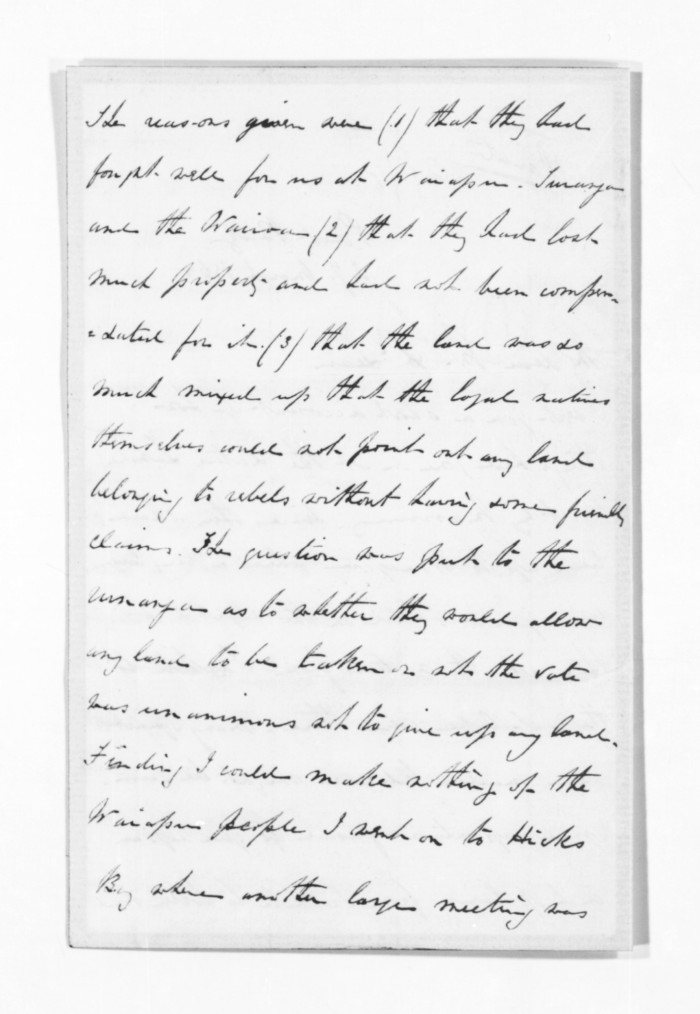 The reasons given were (1) that they had
fought well for us at Waiapu. Turanga
and the Wairoa (2) that they had lost
much property and had not been compen=
=sated for it. (3) that the land was so
much mixed up that the loyal natives
themselves could not point out any land
belonging to rebels without having some friendly
claims. The question was put to the
runanga as to whether they would allow
any land to be taken or not the vote
was unanimous not to give up any land.
Finding I could make nothing of the
Waiapu people I went on to Hicks
Bay where another large meeting was